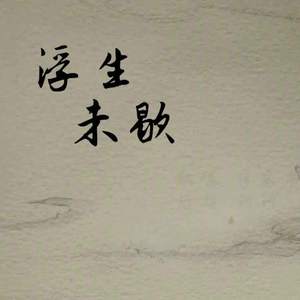 浮生
未歇